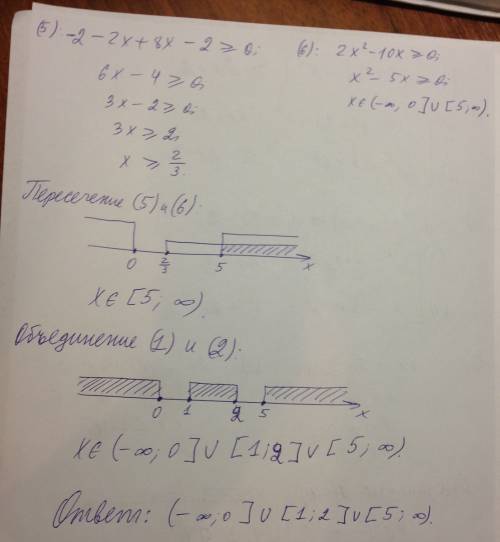 (5): -2-2x+8x-2⩾0;
6x-4⩾0;
3x-2⩾0;
3x⩾2;
x⩾2/3.
(6): 2x²-10x⩾0;
x²-5x⩾0;
x∈(-∞, 0]∪[5,∞).
Пересечение (5) и (6):
0 2/3 5 x
x∈[5; ∞).
Объединение (1) и (2):
0 1 2 5 x
x∈(-∞; 0]∪[1;2]∪[5;∞).
Ответ: (-∞;0]∪[1;2]∪[5;∞).